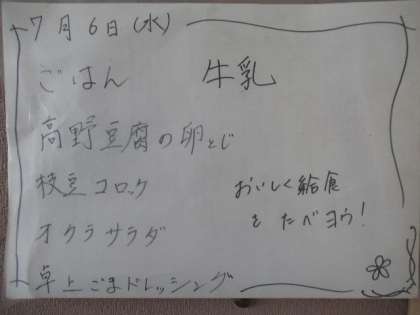 7月6日(水)
ごはん 牛乳
高野豆腐の卵とじ
枝豆コロック
オクラサラダ
卓上ごまドレッシング
おいしく給食
を たべヨウ!